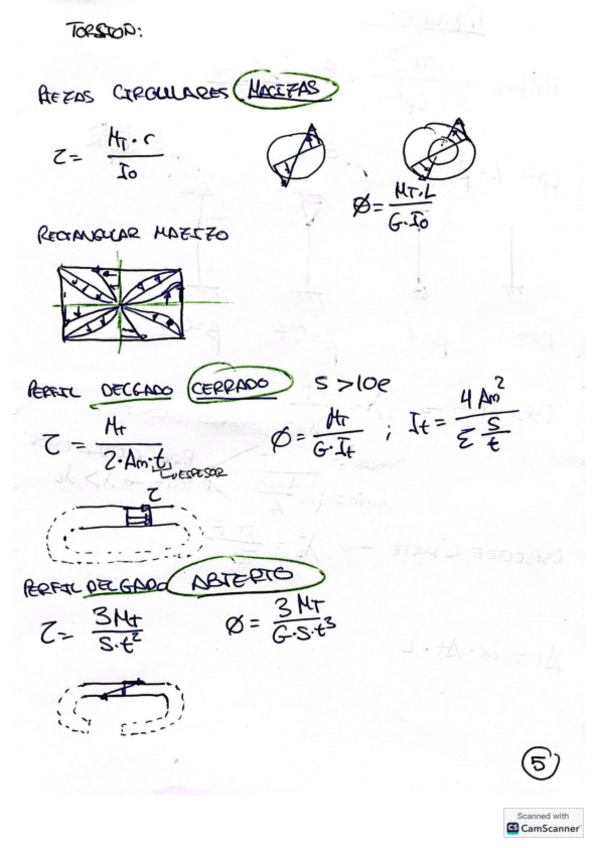 TORSION:
PIEZAS CIRCULARES MACIZAS
τ = MT · r / Io
Ø = MT·L / G·Io
RECTANGULAR MAZIZO
PERFIL DELGADO CERRADO S > 10e
τ = Mt / 2·Am·t
Ø = MT / G·It ; It = 4 Am² / Σ s/t
ESPESOR
τ
PERFIL DELGADO ABIERTO
τ = 3Mt / S·t²
Ø = 3MT / G·S·t³
5
Scanned with
CS CamScanner